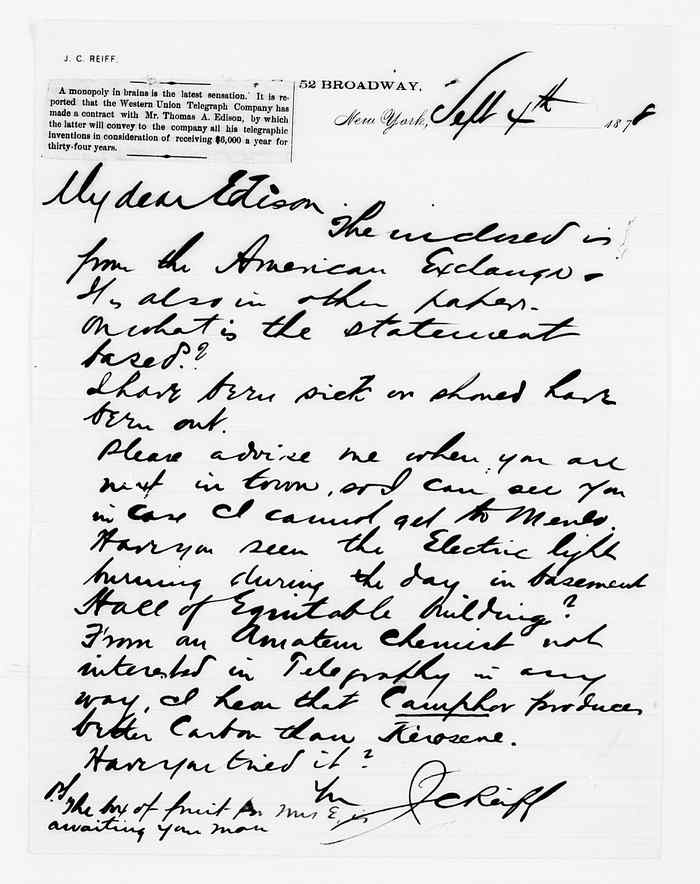 J. C. REIFF.
52 BROADWAY.
A monopoly in brains is the latest sensation. It is re-
ported that the Western Union Telegraph Company has
made a contract with Mr. Thomas A. Edison, by which
the latter will convey to the company all his telegraphic
inventions in consideration of receiving $6,000 a year for
thirty-four years.
New York, Sept 4th 1878
My dear Edison
The inclosed is
from the American Exchange.
It is also in other papers.
On what is the statement
based??
I have been sick or should have
been out.
Please advise me when you are
next in town, so I can see you
in case I cannot get to Menlo.
Have you seen the Electric light
burning during the day in basement
Hall of Equitable building?
From an Amateur Chemist not
interested in Telegraphy in any
way, I hear that Camphor produces
better Carbon than Kerosene.
Have you tried it?
Yrs JCReiff
P.S.
The box of fruit for Mrs E. is
awaiting your man